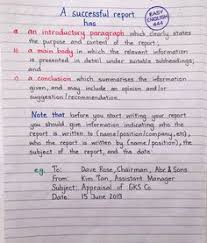 A successful report
has
EASY ENGLISH 444
a an introductory paragraph which clearly states
the purpose and content of the report;
b a main body in which the relevant information
is presented in detail under suitable subheadings;
and
c a conclusion which summarises the information
given, and may include an opinion and/or
suggestion/recommendation.
Note that before you start writing your report
you should give information indicating who the
report is written to (name/position/company, etc),
who the report is written by (name/position), the
subject of the report, and the date
e.g. To: Dave Rose, Chairman, Abc & Sons
From: Kim Ton, Assistant Manager
Subject: Appraisal of GKS Co.
Date: 15 June 2019